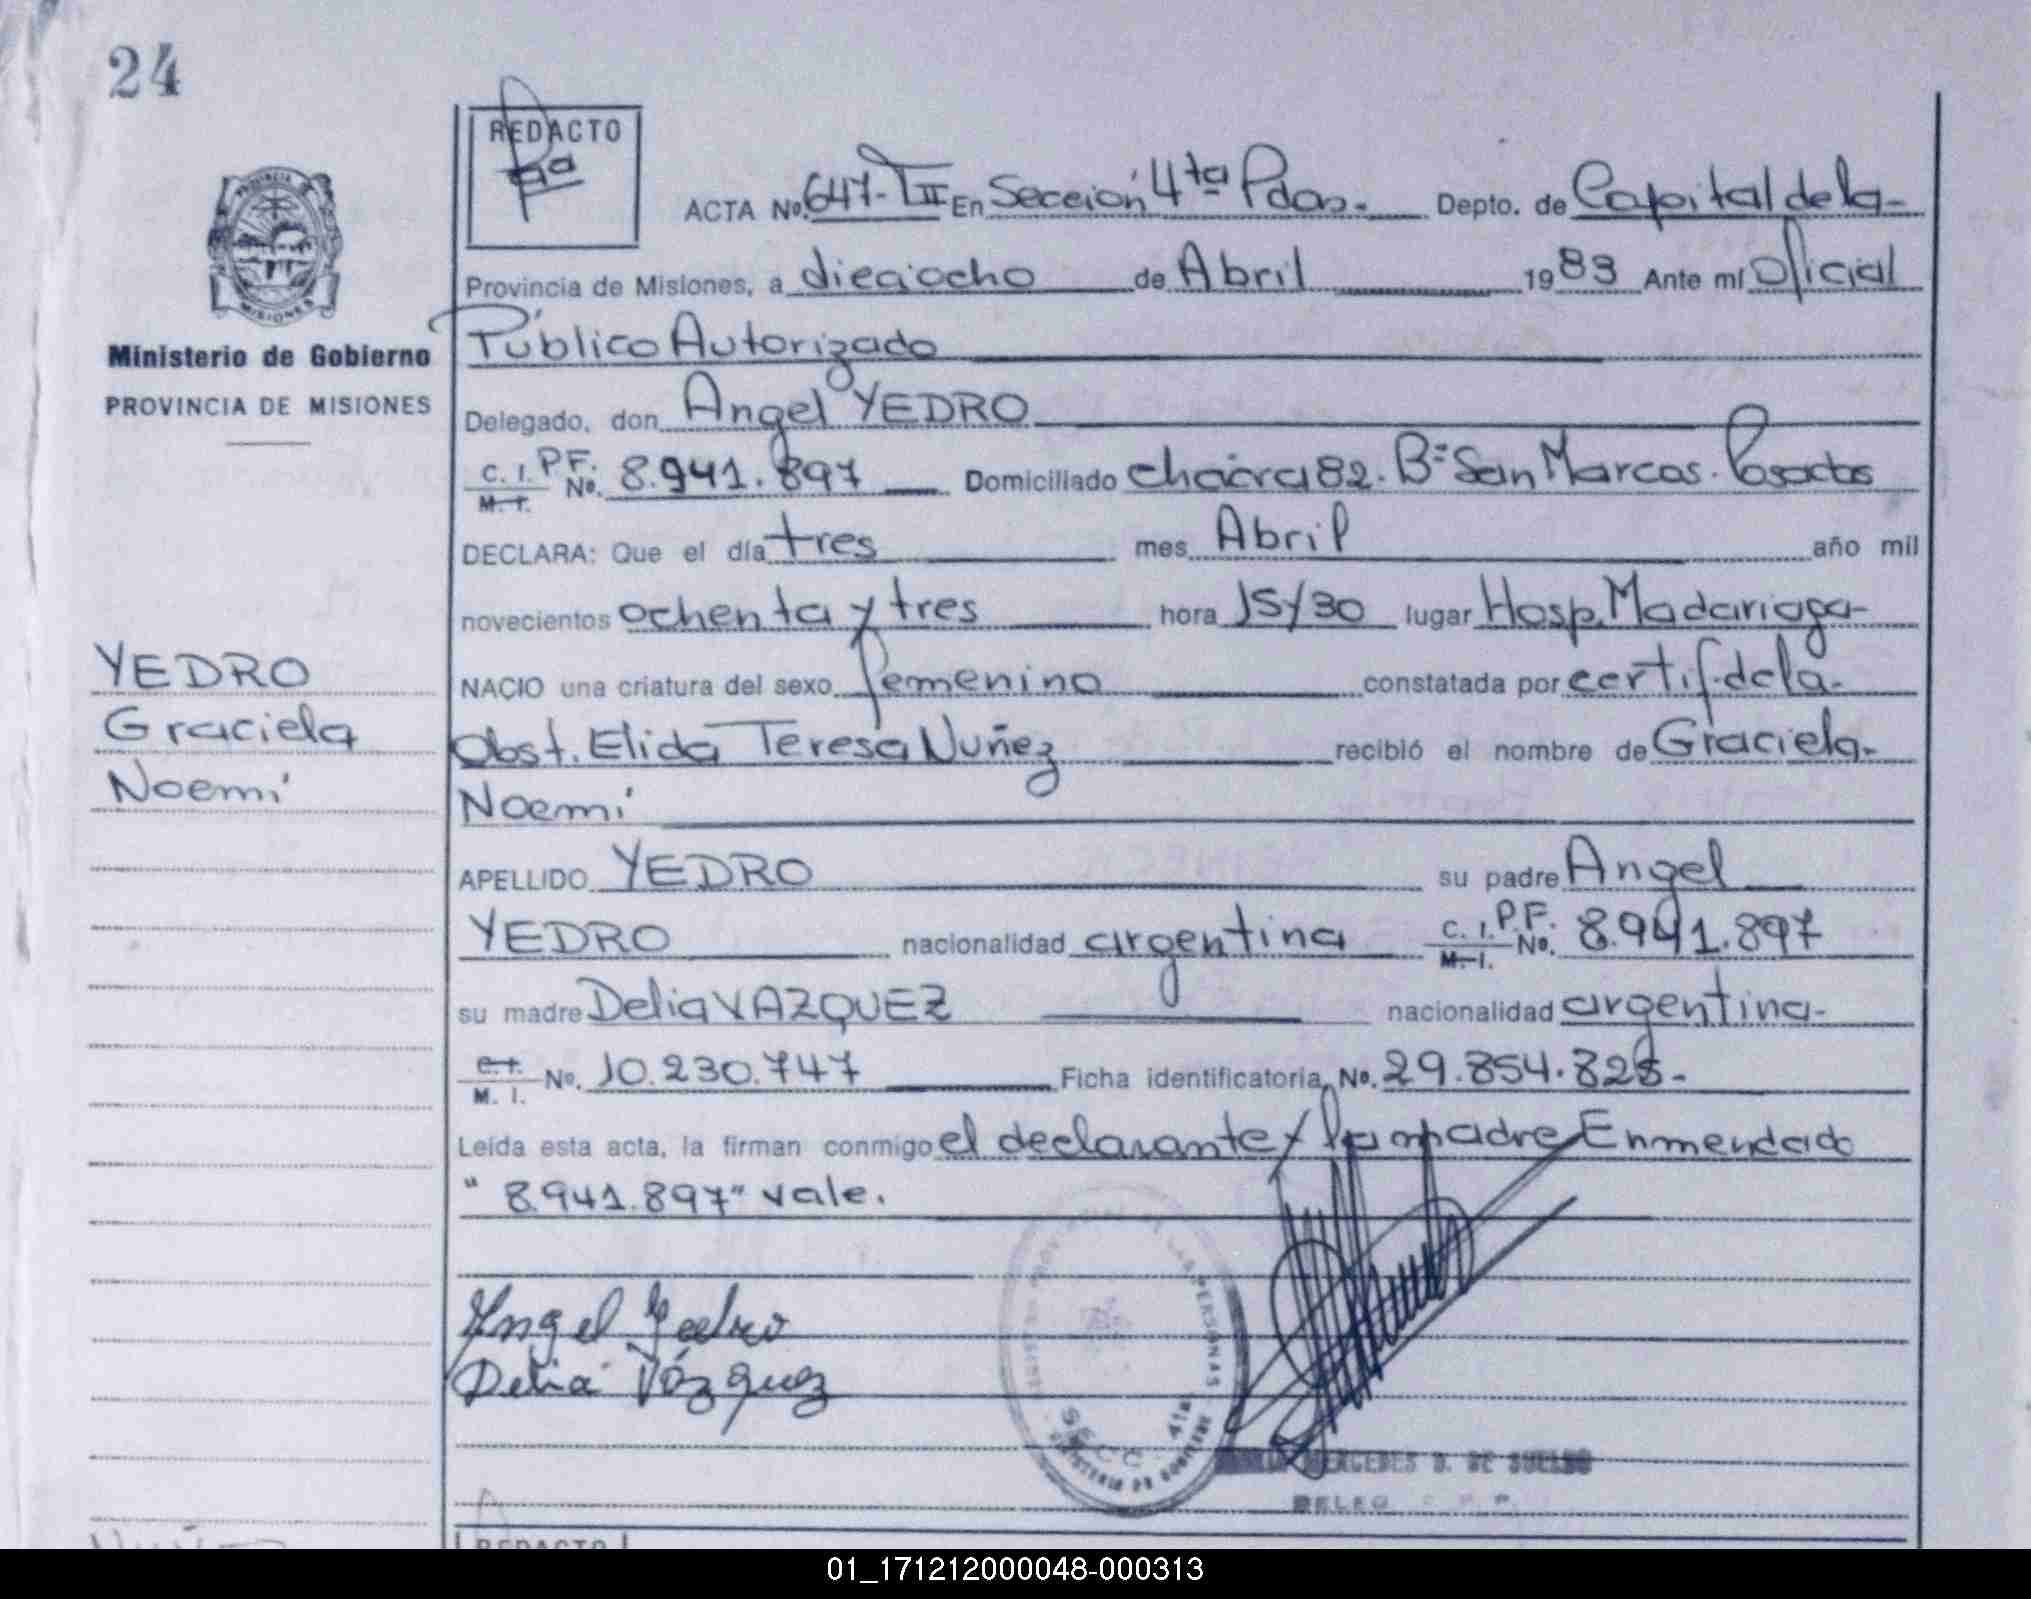 24
REDACTO
ACTA No. 647-TII En Sección 4ta Pdas. Depto. de Capital de la
PROVINCIA
MISIONES
Provincia de Misiones, a dieciocho de Abril 1983 Ante mí Oficial
Público Autorizado
Ministerio de Gobierno
PROVINCIA DE MISIONES
Delegado, don Angel YEDRO
C. I. P.F. M. I. No. 8.941.897 Domiciliado chacra 82. Bº San Marcos. Posadas
DECLARA: Que el día tres mes Abril año mil
novecientos ochenta y tres hora 15/30 lugar Hosp. Madariaga-
YEDRO
Graciela
Noemí
NACIO una criatura del sexo femenino constatada por certif. de la-
Obst. Elida Teresa Nuñez recibió el nombre de Graciela-
Noemí
APELLIDO YEDRO su padre Angel
YEDRO nacionalidad argentina C. I. P.F. M. I. No. 8.941.897
su madre Delia VAZQUEZ nacionalidad argentina-
C. I. M. I. No. 10.230.747 Ficha identificatoria No. 29.854.828-
Leída esta acta, la firman conmigo el declarante y la madre Enmendado
"8.941.897" vale.
Angel Yedro
Delia Vázquez
LAS PERSONAS
SECC. 4ta
MINISTERIO DE GOBIERNO
MERCEDES D. DE SUELDO
DELEG. R. P. P.
REDACTO
01_171212000048-000313